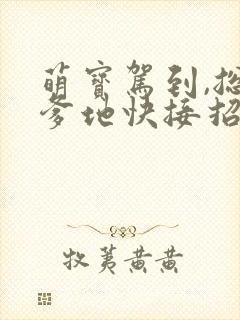 萌寶駕到,總
爹地快接招
牧荑黄黄